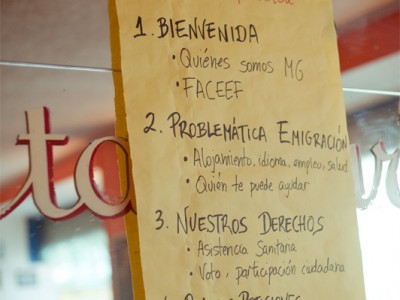 1. BIENVENIDA
• Quiénes somos MG
• FACEEF
2. PROBLEMÁTICA EMIGRACIÓN
• Alojamiento, idioma, empleo, salud
• Quién te puede ayudar
3. NUESTROS DERECHOS
• Asistencia Sanitaria
• Voto, participación ciudadana
to